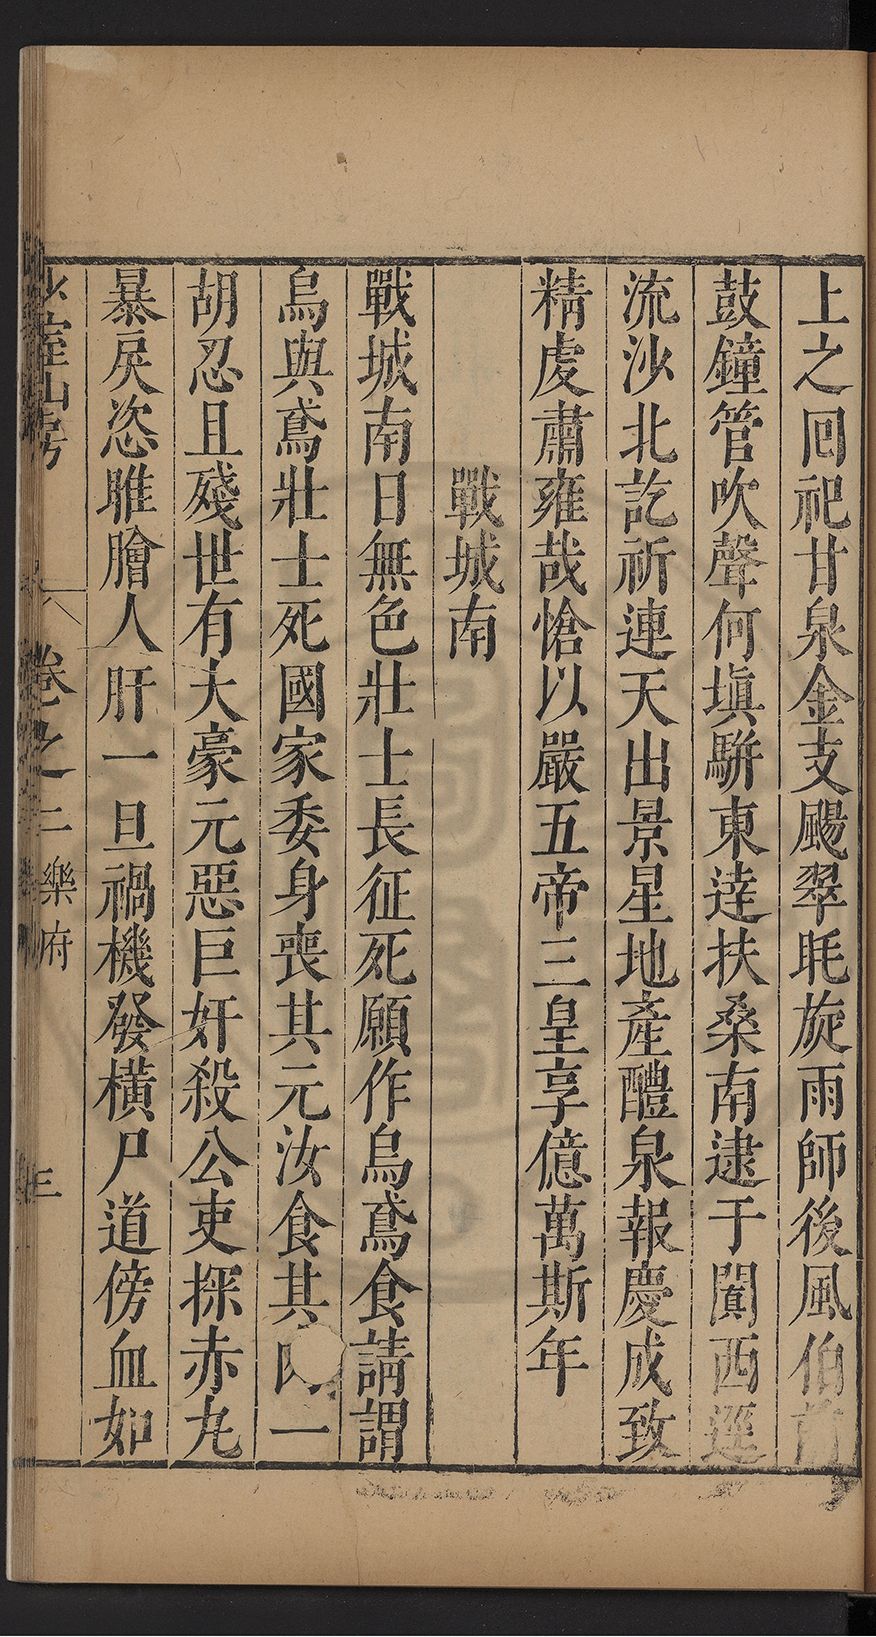 上之回祀甘泉金支颺翠旄旋雨師後風伯前
鼓鐘管吹聲何塡駢東逹扶桑南逮于闐西逕
流沙北訖祈連天出景星地產醴泉報慶成致
精虔肅雍哉愴以嚴五帝三皇享億萬斯年
戰城南
戰城南日無色壯士長征死願作烏鳶食請謂
烏與鳶壯士死國家委身喪其元汝食其一
胡忍且殘世有大豪元惡巨奸殺公吏探赤丸
暴戾恣睢膾人肝一旦禍機發橫尸道傍血如
少室山房
卷之二 樂府
三